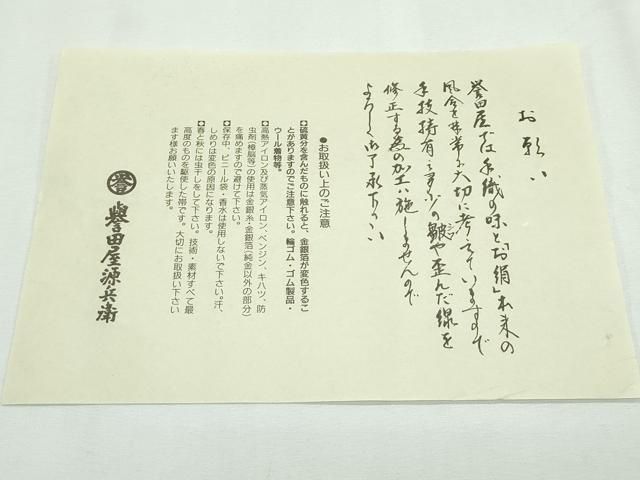 お願い
誉田屋では手織の味と「お絹」本来の
風合を非常に大切に考えていますので
手技特有の多少の皺や歪んだ線を
シワ
修正する為の加工は施しませんので
よろしく御了承下さい
●お取扱い上のご注意
【硫黄分を含んだものに触れると、金銀箔が変色するこ
とがありますのでご注意下さい。輪ゴム・ゴム製品・
ウール着物等。
【高熱アイロン及び蒸気アイロン、ベンジン、キハツ、防
虫剤(樟脳等)の使用は金銀糸・金銀箔(純金以外の部分)
を痛めますので避けて下さい。
【保存中、ビニール袋・香水は使用しないで下さい。汗、
しめりは変色の原因になります。
【春と秋には虫干しをして下さい。技術・素材すべて最
高度のものを駆使した帯です。大切にお取扱い下さい
ます様お願いいたします。
誉
誉田屋源兵衛